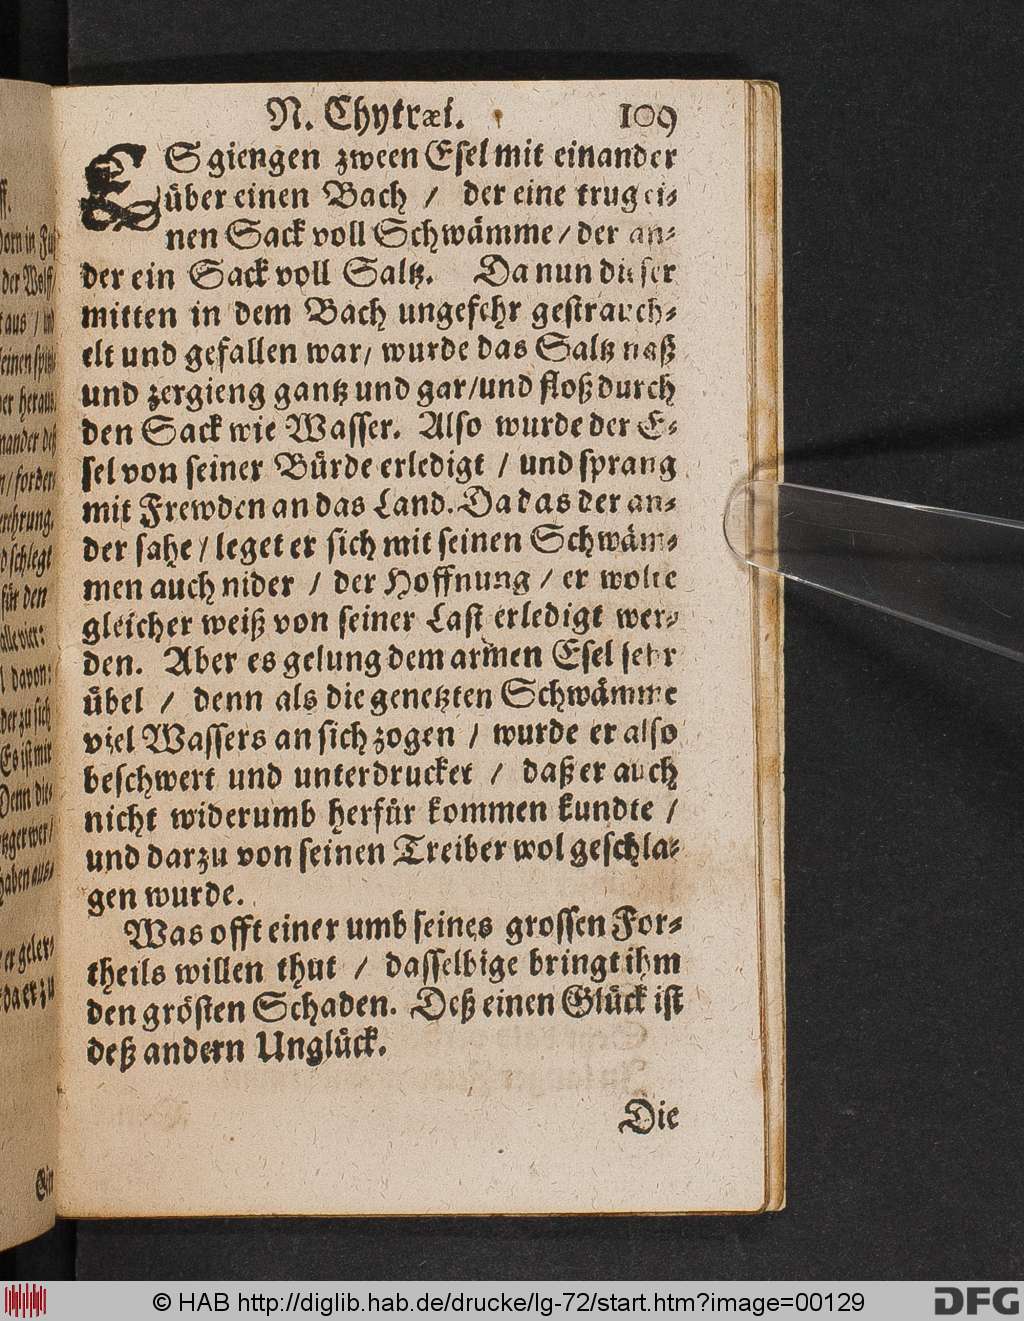 N. Chytræi. 109
ES giengen zween Esel mit einander
über einen Bach / der eine trug ei-
nen Sack voll Schwämme / der an-
der ein Sack voll Saltz. Da nun dieser
mitten in dem Bach ungefehr gestrauch-
elt und gefallen war / wurde das Saltz naß
und zergieng gantz und gar / und floß durch
den Sack wie Wasser. Also wurde der E-
sel von seiner Bürde erledigt / und sprang
mit Frewden an das Land. Da das der an-
der sahe / leget er sich mit seinen Schwäm-
men auch nider / der Hoffnung / er wolte
gleicher weiß von seiner Last erledigt wer-
den. Aber es gelung dem armen Esel sehr
übel / denn als die genetzten Schwämme
viel Wassers an sich zogen / wurde er also
beschwert und unterdrucket / daß er auch
nicht widerumb herfür kommen kundte /
und darzu von seinen Treiber wol geschla-
gen wurde.
Was offt einer umb seines grossen For-
theils willen thut / dasselbige bringt ihm
den grösten Schaden. Deß einen Glück ist
deß andern Unglück.
Die
© HAB http://diglib.hab.de/drucke/lg-72/start.htm?image=00129
DFG